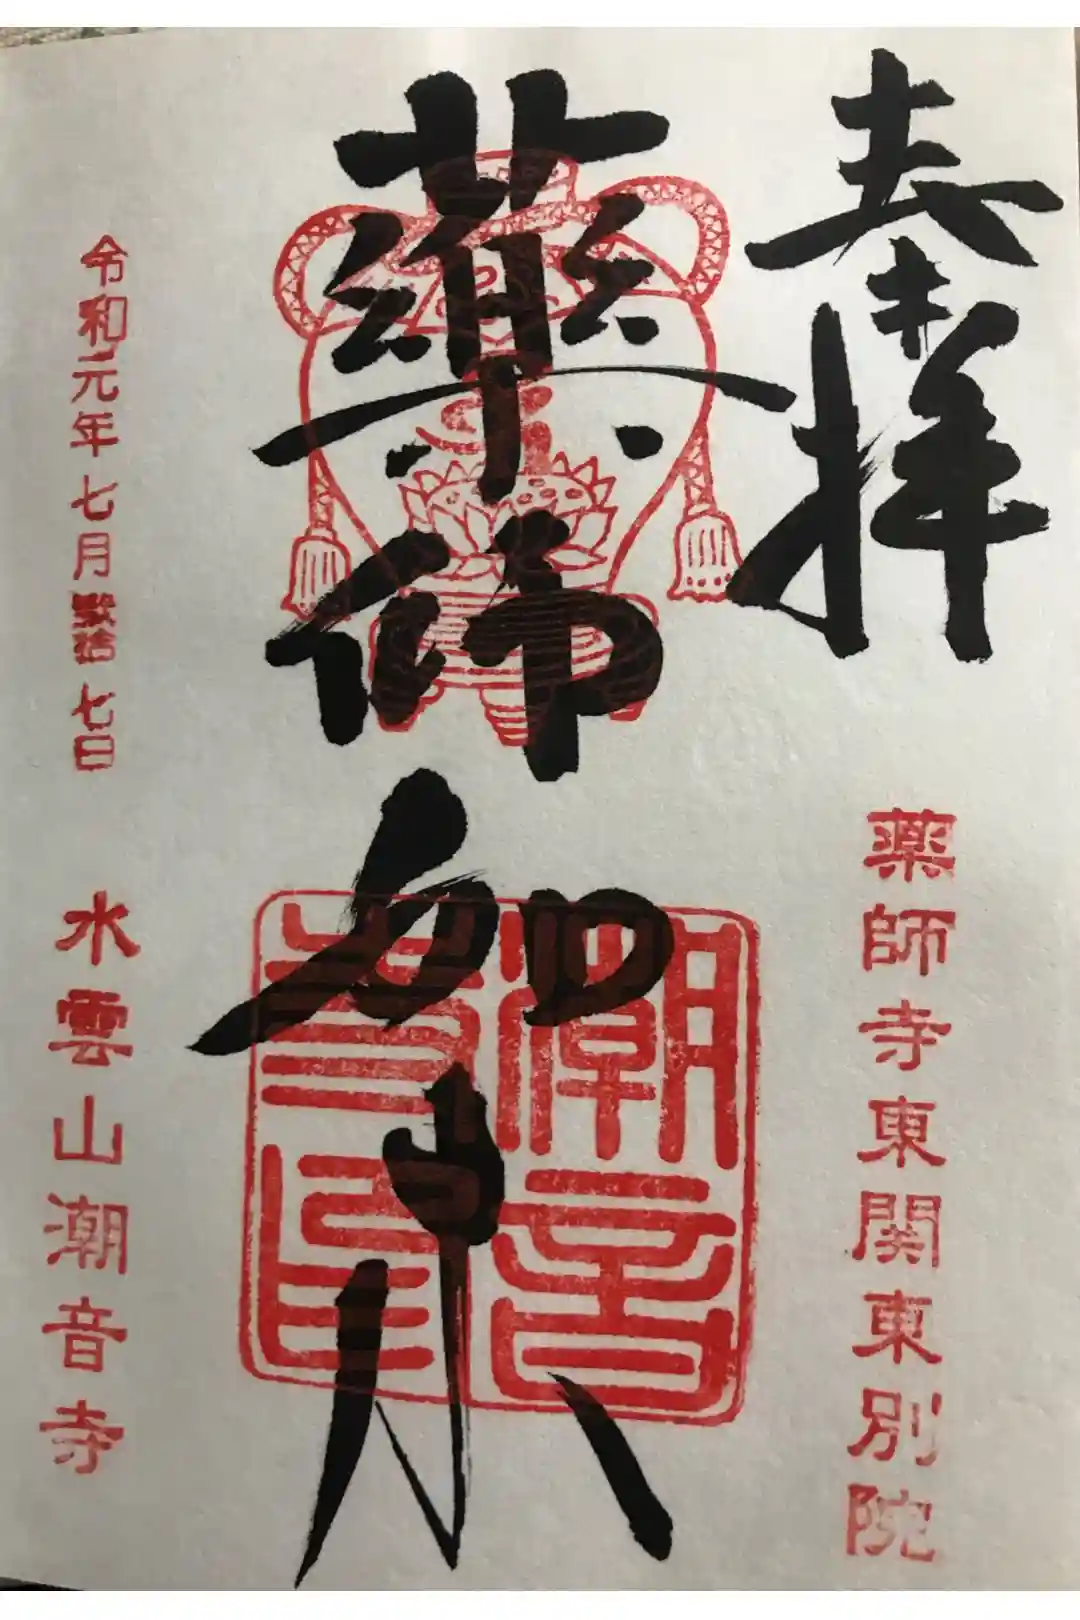 奉拝
薬師寺東関東別院
薬師如来
潮音
寺印
令和元年七月貮拾七日
水雲山潮音寺